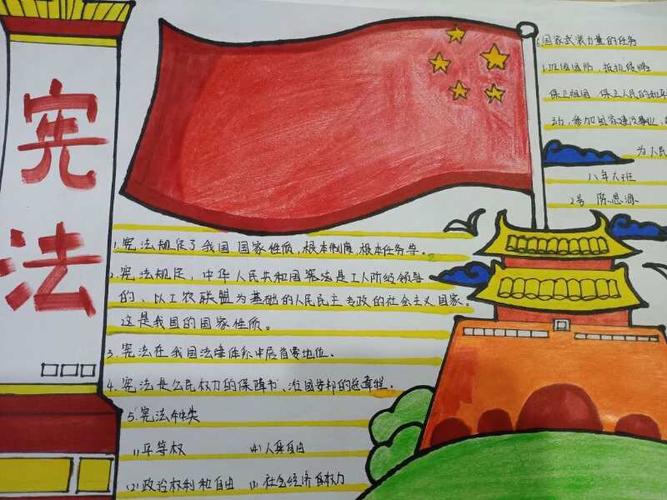 宪法
1. 宪法规定了我国国家性质,根本制度,根本任务等。
2. 宪法规定,中华人民共和国宪法是工人阶级领导
的、以工农联盟为基础的人民民主专政的社会主义国家
这是我国的国家性质。
3. 宪法在我国法律体系中居首要地位。
4. 宪法是公民权力的保障书、治国安邦的总章程。
5. 宪法
(1) 平等权
(4) 人身自由
(2) 政治权利和自由
社会经济
国家武装力量的任务
巩固国防,抵抗侵略
保卫祖国 保卫人民的和平
动,参加国家建设事业,
为人民
八年六班
2号